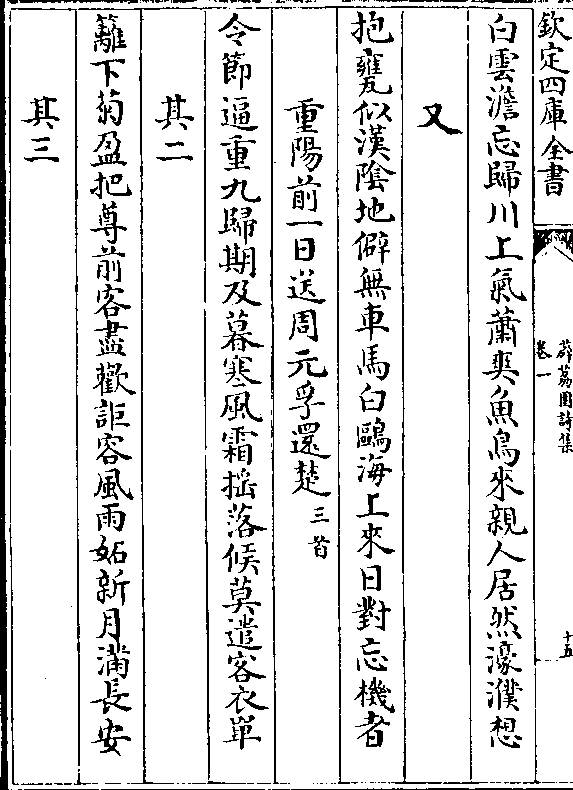 欽定四庫全書
薜荔園詩集
卷一
十五
白雲澹忘歸川上氣蕭爽魚鳥來親人居然濠濮想
又
抱甕似漢陰地僻無車馬白鷗海上來日對忘機者
重陽前一日送周元孚還楚三首
令節逼重九歸期及暮寒風霜揺落候莫遣客衣單
其二
籬下菊盈把尊前客盡歡詎容風雨妬新月滿長安
其三